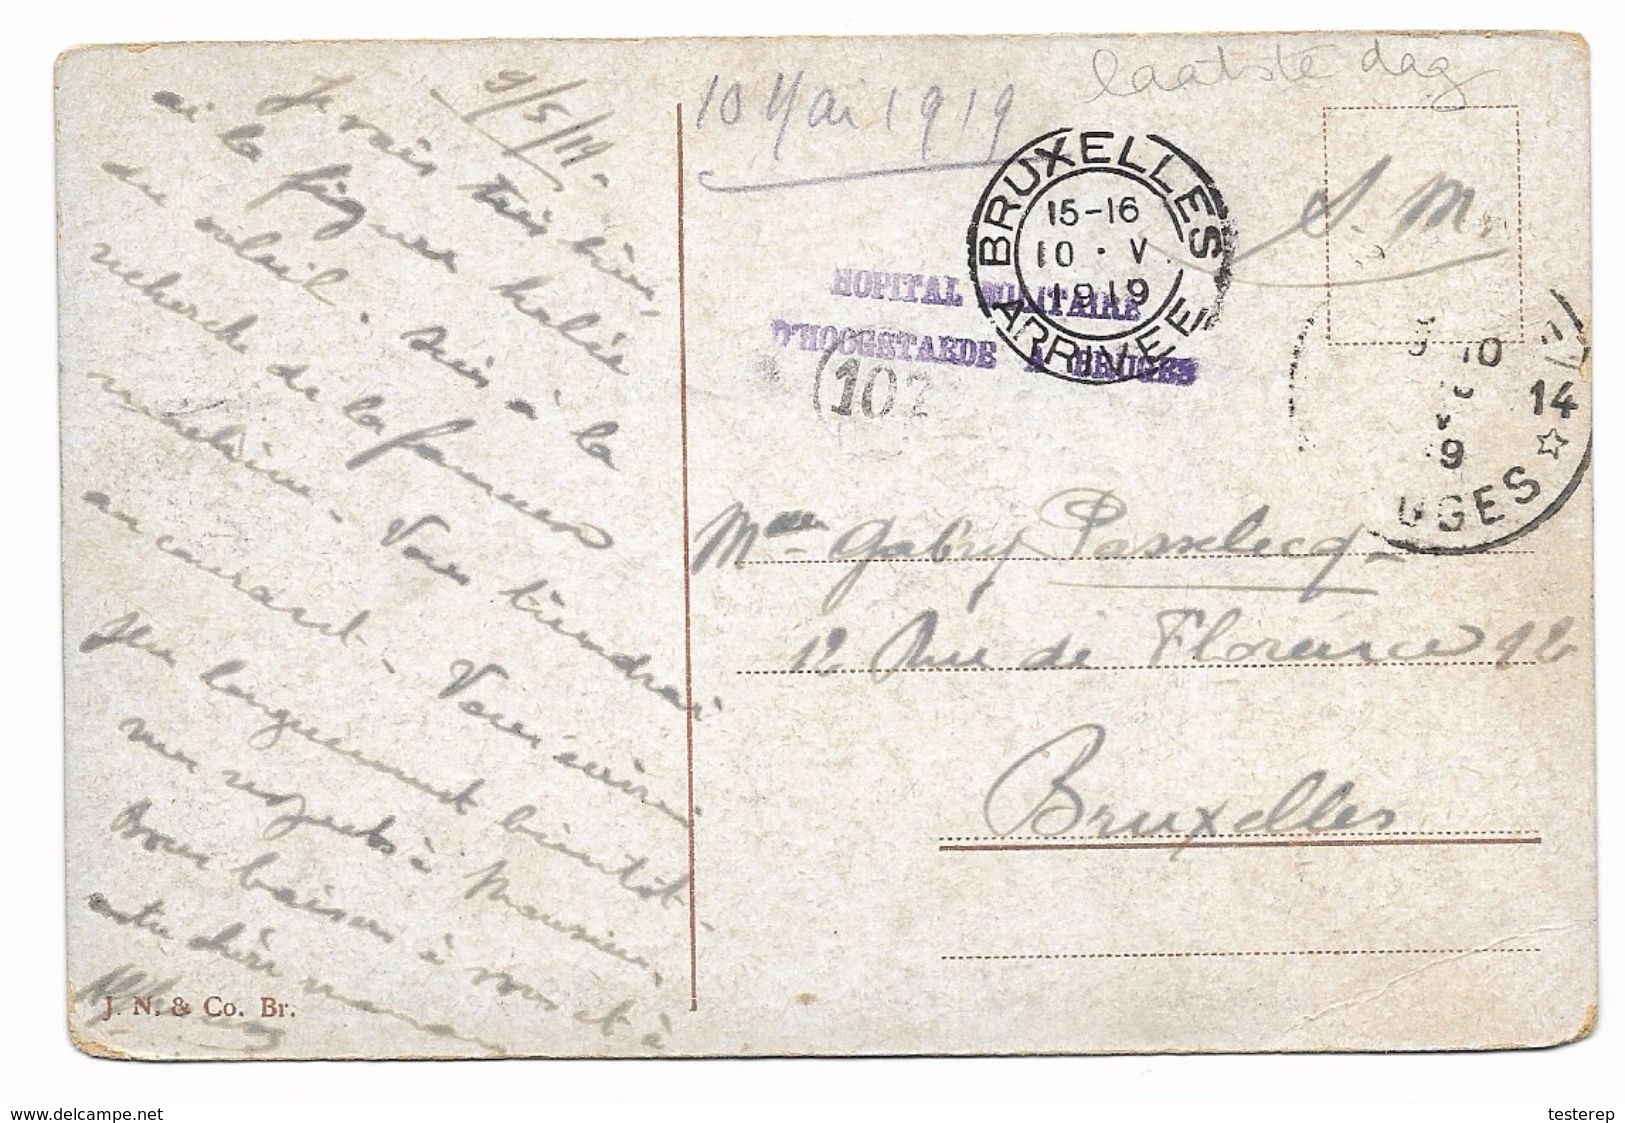 9/5/19.
Je vais très bien,
ai la figure halée
du soleil. Suis à la
recherche de la fameuse
au courant - Vous écrirai
plus longuement bientôt -
mes respects à Monsieur,
Bons baisers à vous et à
votre chère maman
J. N. & Co. Br.
10 Mai 1919
laatste dag
S. M.
BRUXELLES
15-16
10 · V
1919
ARRIVEE
HOPITAL MILITAIRE
D'HOOGSTAEDE A BRUGES
(102
10
14
9
UGES
Mlle Gabry Passelecq
12 Rue de Florence 12
Bruxelles
www.delcampe.net
testerep